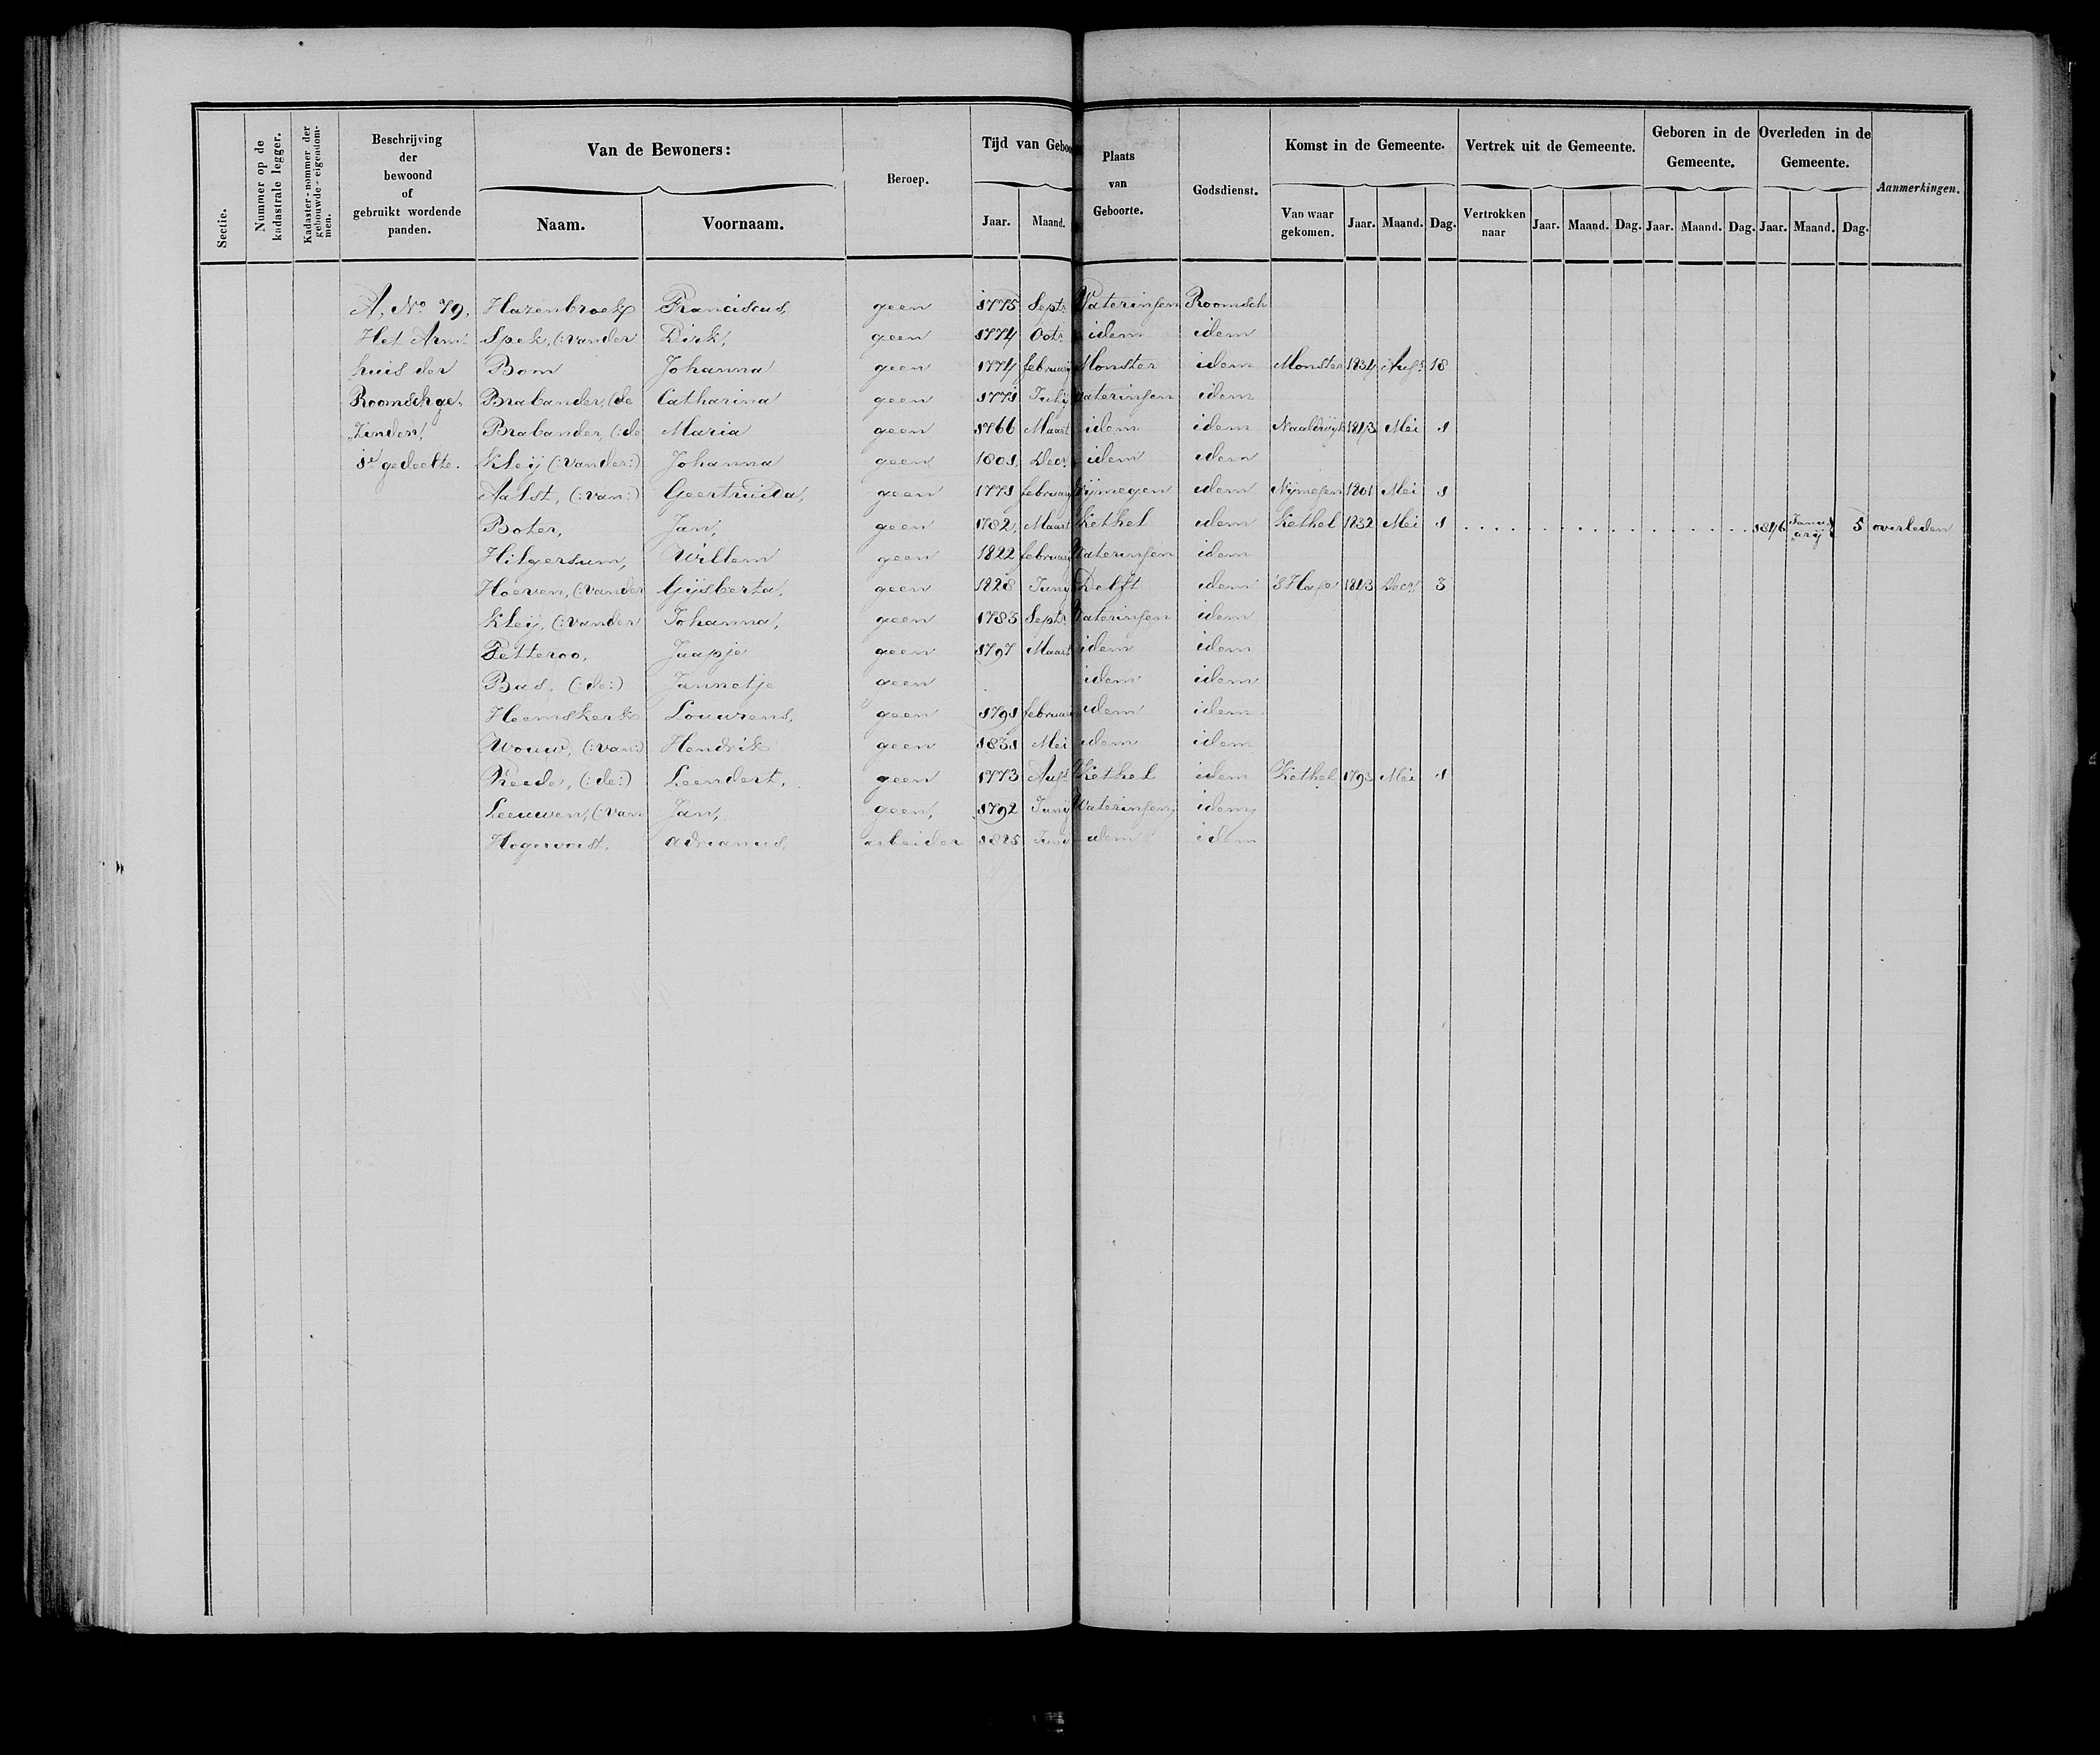 Sectie. Nummer op de kadastrale legger. Kadaster-nommer der gebouwde-eigendommen. Beschrijving der bewoond of gebruikt wordende panden. Van de Bewoners: Naam. Voornaam. Beroep. Tijd van Geboo Jaar. Maand. Plaats van Geboorte. Godsdienst. Komst in de Gemeente. Van waar gekomen. Jaar. Maand. Dag. Vertrek uit de Gemeente. Vertrokken naar Jaar. Maand. Dag. Geboren in de Gemeente. Jaar. Maand. Dag. Overleden in de Gemeente. Jaar. Maand. Dag. Aanmerkingen.
A, No 79, Hazenbroek Franciscus, geen 1775 Septr Wateringen Roomsch
Het Arm- Spek, (: vander Dirk, geen 1774 Octr idem idem
huis der Bom Johanna geen 1774 februarij Monster idem Monster 1834 Augt 18
Roomschge- Brabander, (de Catharina geen 1771 Julij Wateringen idem
"zinden, Brabander, (: de Maria geen 1766 Maart idem idem Naaldwijk 1843 Mei 1
1e gedeelte. Kleij (: vander :) Johanna geen 1801 Decr idem idem
Aalst, (: van :) Geertruida, geen 1771 februarij Nijmegen idem Nijmegen 1801 Mei 1
Boter, Jan, geen 1782, Maart Kethel idem Kethel 1832 Mei 1 . . . . . . . . . . . . . . . . 1846 Janu"arij 5 overleden
Hilgersum, Willem geen 1822 februarij Wateringen idem
Hoeven, (: vander Gijsberta, geen 1828 Junij Delft idem 'S Hage 1843 Decr 3
Kleij, (: vander Johanna, geen 1783 Septr Wateringen idem
Petteroo, Jaapje geen 1797 Maart idem idem
Bas, (: de :) Jannetje geen idem idem
Heemskerk Louwrens, geen 1791 februarij idem idem
Wouw, (: van :) Hendrik geen 1831 Mei idem idem
Reede, (: de :) Leendert, geen 1773 Augt Kethel idem Kethel 1793 Mei 1
Leeuwen, (: van Jan, geen, 1792 Junij Wateringen, idem,
Hogervorst, adrianus, arbeider 1825 Junij idem idem